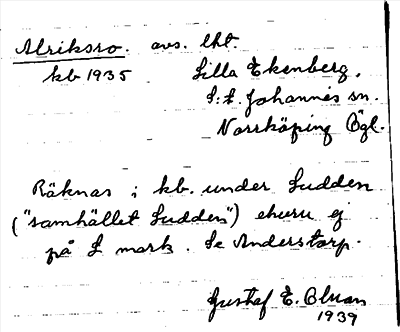 Alriksro. avs. lht.
kb 1935 Lilla Ekenberg,
S:t Johannes sn.
Norrköping Ögl.
Räknas i kb. under Sudden
("samhället Sudden") ehuru ej
på S mark. Se Anderstorp.
Gustaf E.
1939